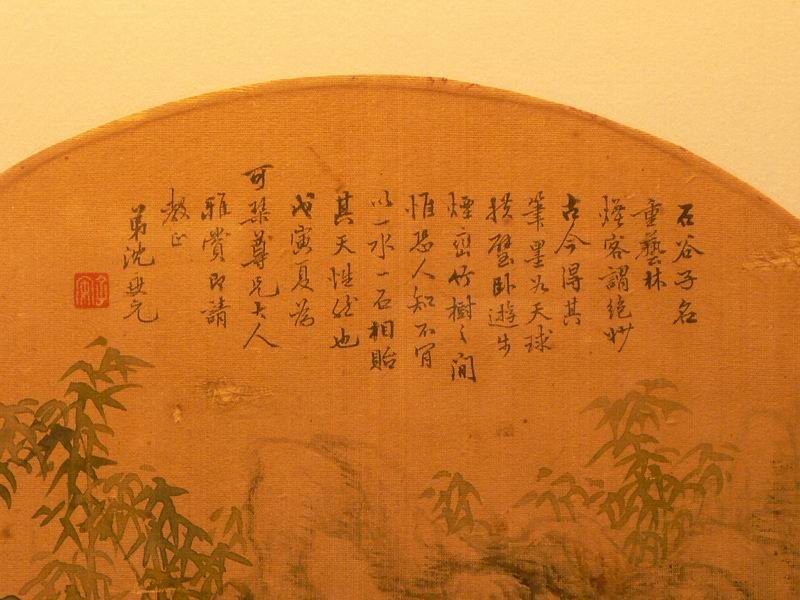 石谷子名
重藝林
煙客謂絕妙
古今得其
筆墨如天球
拱璧卧遊步
煙巒竹樹之間
惟恐人知不肯
以一水一石相貽
其天性然也
戊寅夏為
可琴尊兄大人
雅賞即請
教正
弟沈